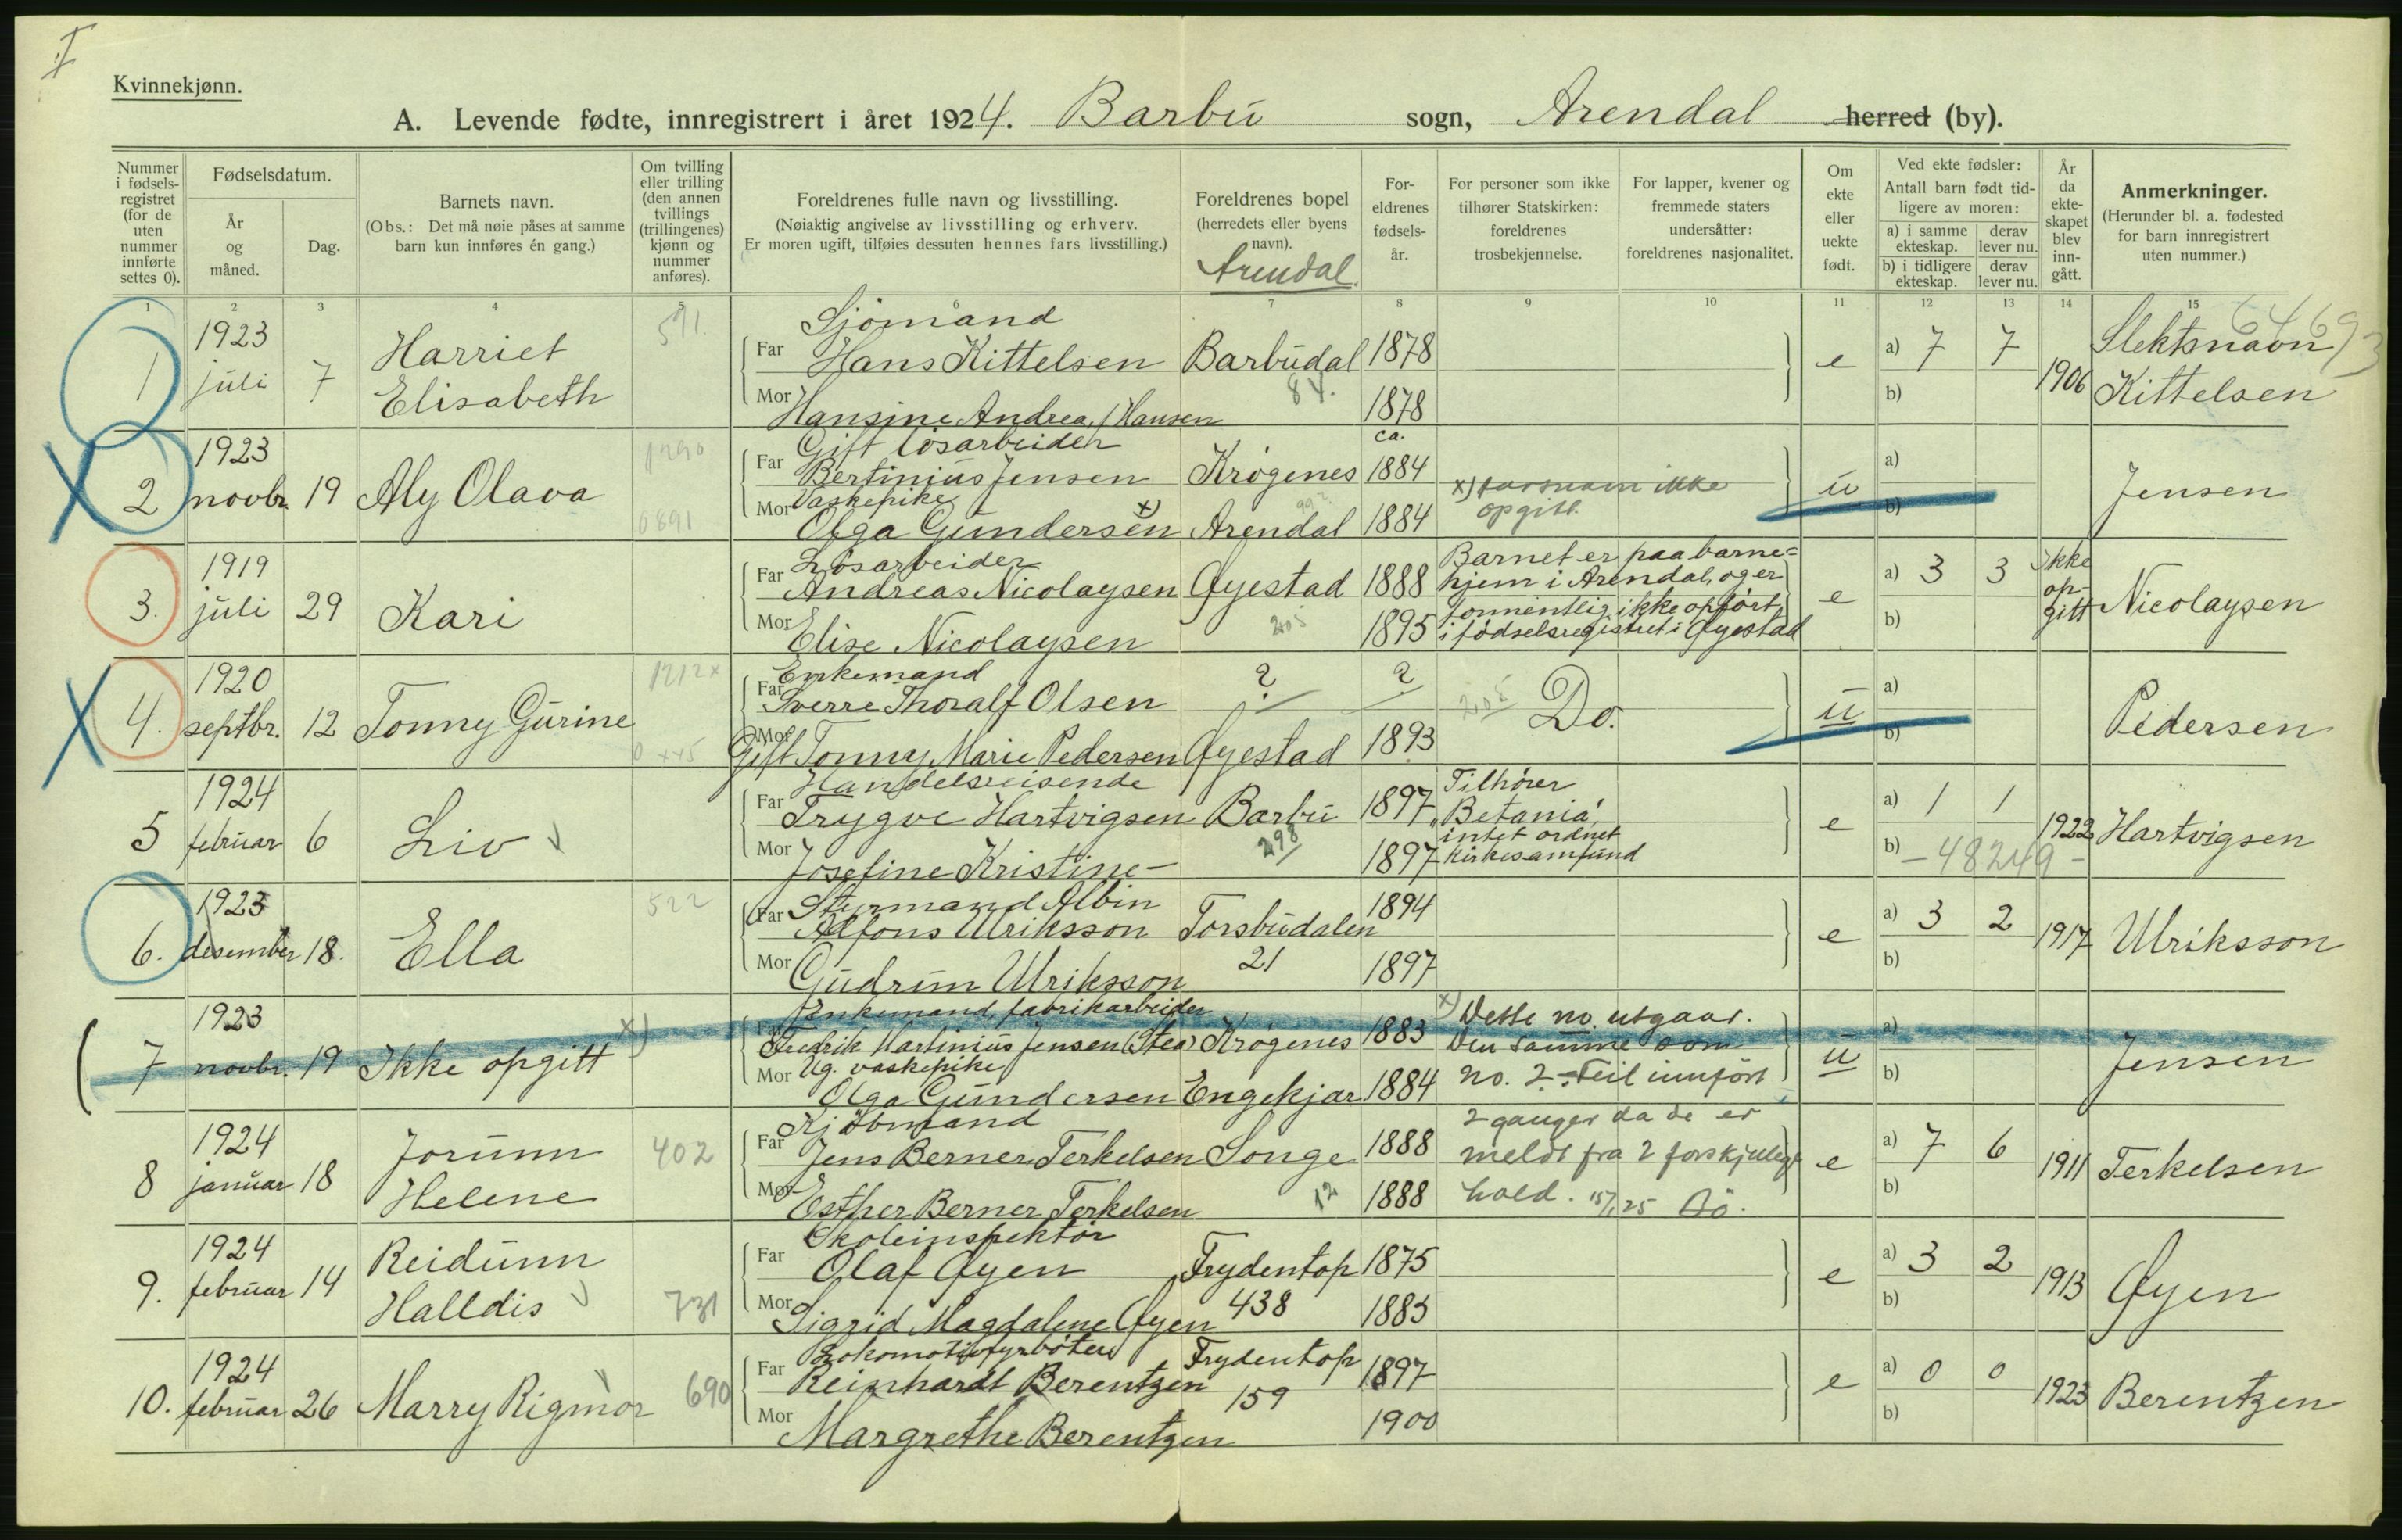 I
Kvinnekjønn.
A. Levende fødte, innregistrert i året 1924. Barbu sogn, Arendal herred (by).
Nummer i fødsels-registret (for de uten nummer innførte settes 0).
Fødselsdatum.
År og måned.
Dag.
Barnets navn.
(Obs.: Det må nøie påses at samme barn kun innføres én gang.)
Om tvilling eller trilling (den annen tvillings (trillingenes) kjønn og nummer anføres).
Foreldrenes fulle navn og livsstilling.
(Nøiaktig angivelse av livsstilling og erhverv.
Er moren ugift, tilføies dessuten hennes fars livsstilling.)
Foreldrenes bopel
(herredets eller byens navn).
Arendal
For-eldrenes fødsels-år.
For personer som ikke tilhører Statskirken: foreldrenes trosbekjennelse.
For lapper, kvener og fremmede staters undersåtter: foreldrenes nasjonalitet.
Om ekte eller uekte født.
Ved ekte fødsler:
Antall barn født tid-ligere av moren:
a) i samme ekteskap.
derav lever nu.
b) i tidligere ekteskap.
derav lever nu.
År da ekte-skapet blev inn-gått.
Anmerkninger.
(Herunder bl. a. fødested for barn innregistrert uten nummer.)
1 2 3 4 5 6 7 8 9 10 11 12 13 14 15
Sjömand
1 1923 juli 7 Harriet Elisabeth 571.
Far Hans Kittelsen Barbudal 1878
Mor Hansine Andrea f Hansen 84. 1878
e a) 7 7 b) 1906 Slektsnavn Kittelsen
Gift lösarbeider
2 1923 novbr. 19 Aly Olava 1290 0891
Far Bertinius Jensen Krögenes ca. 1884
Vaskepike
Mor Olga Gundersen x) Arendal 1884
x) farsnavn ikke opgitt.
u a) b) Jensen
Lösarbeider
3. 1919 juli 29 Kari
Far Andreas Nicolaysen Øyestad 1888
Mor Elise Nicolaysen 205 1895
Barnet er paa barne=
hjem i Arendal, og er
formentlig ikke opfört
i födselsregistret i Øyestad
e a) 3 3 b) Ikke op-gitt Nicolaysen
Enkemand
4. 1920 septbr. 12 Tonny Gurine 1212x
Far Sverre Thoralf Olsen ? ?
Mor Gift Tonny Marie Pedersen Øyestad 1893
205 Do.
u a) b) Pedersen
Handelsreisende
5 1924 februar 6 Liv
Far Trygve Hartvigsen Barbu 1897
Mor Josefine Kristine — 298 1897
Tilhörer
"Betania",
intet ordnet
kirkesamfund
e a) 1 1 b) – 48249 – 1922 Hartvigsen
6. 1923 desember 18. Ella 522
Far Styrmand Albin
Alfons Ulriksson Torsbudalen 1894
Mor Gudrun Ulriksson 21 1897
e a) 3 2 b) 1917 Ulriksson
Enkemand, fabrikarbeider
7 1923 novbr. 19 Ikke opgitt x)
Far Fredrik Martinius Jensen (Stea) Krögenes 1883
Mor Ug. vaskepike
Olga Gundersen Engekjær 1884
x) Dette no. utgaar.
Den samme som
no. 2. – Feil innfört
2 ganger da de er
meldt fra 2 forskjellige
hold. 15/1 25 Aö.
u a) b) Jensen
Kjöbmand
8 1924 januar 18 Jorunn Helene 402
Far Jens Berner Terkelsen Songe 1888
Mor Esther Berner Terkelsen 12 1888
e a) 7 6 b) 1911 Terkelsen
Skoleinspektör
9. 1924 februar 14 Reidunn Halldis 731
Far Olaf Øyen Frydentop 1875
Mor Sigrid Magdalene Øyen 438 1883
e a) 3 2 b) 1913 Øyen
Lokomotivfyrböter
10. 1924 februar 26 Marry Rigmor 690
Far Reinhardt Berentzen Frydentop 159 1897
Mor Margrethe Berentzen 1900
e a) 0 0 b) 1923 Berentzen